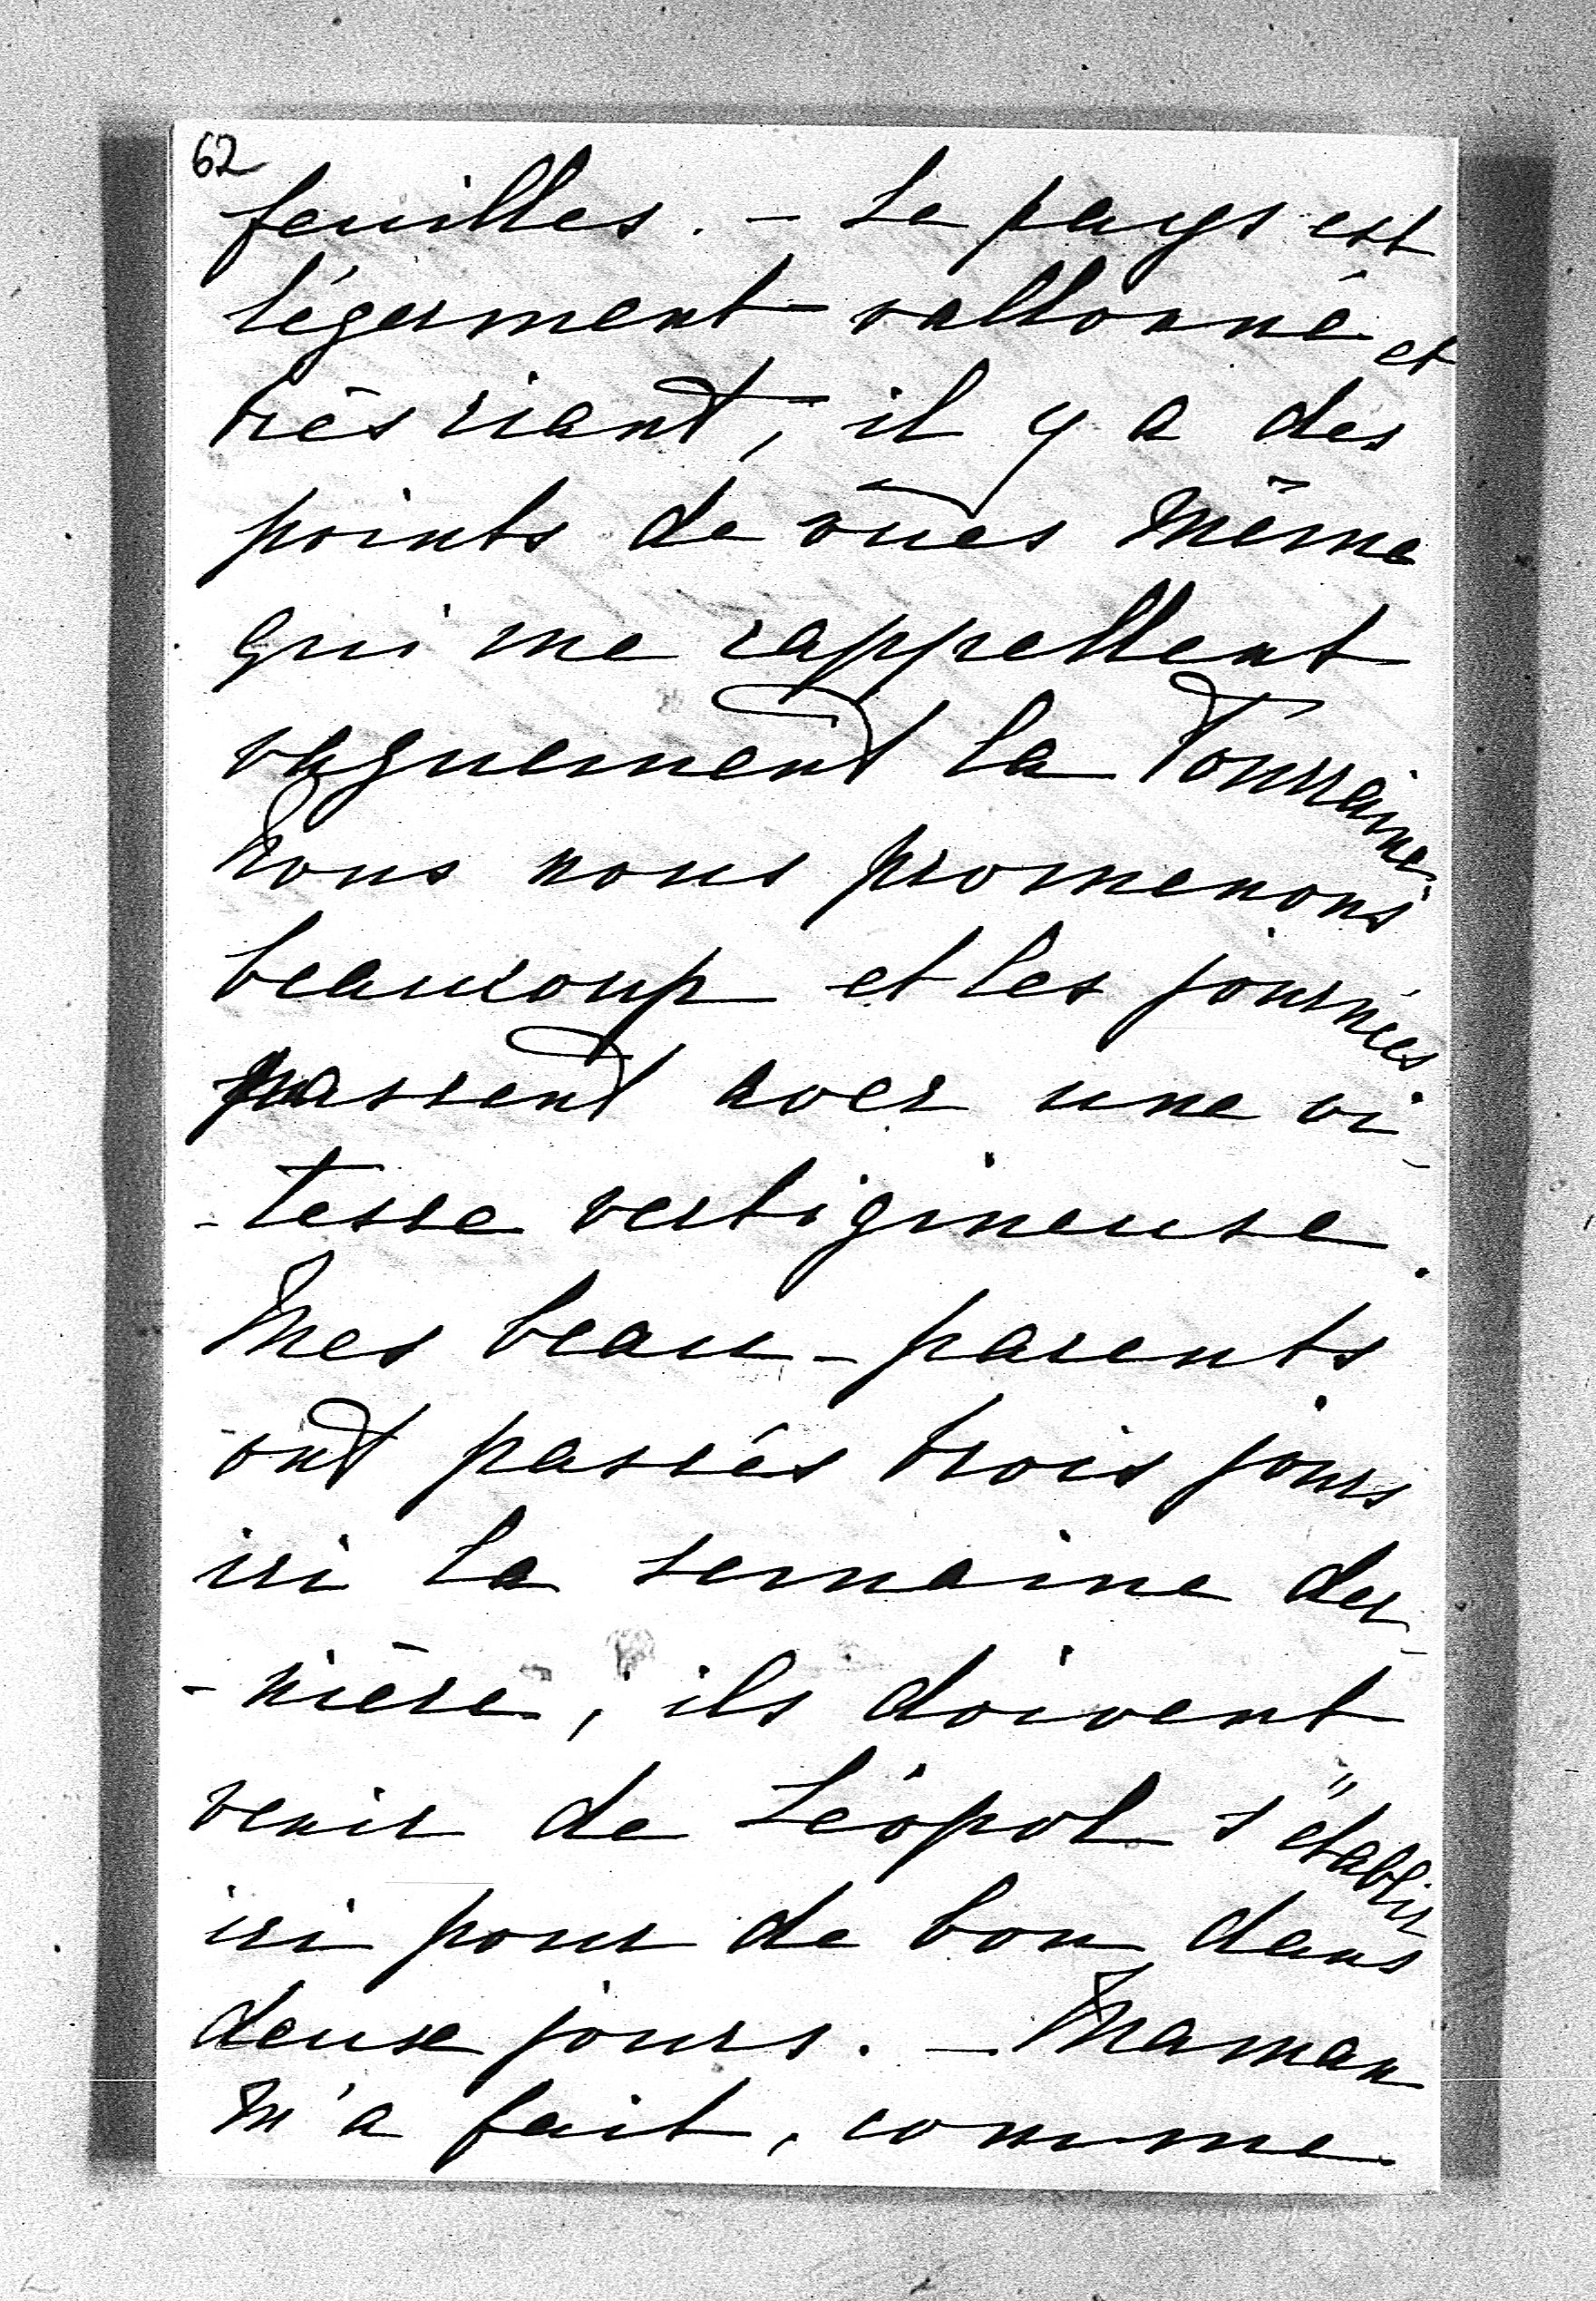 62
feuilles. - Le pays est
légerment vallonné et
très riant, il y a des
points de vûes même
qui me rappellent
vaguement la Tourraine.
Nous nous promenons
beaucoup et les journées
passent avec une vi-
-tesse vertigineuse.
Mes beau-parents
ont passés trois jours
ici la semaine der-
-nière, ils doivent
venir de Léopol s"établir
ici pour de bon dans
deux jours. - Maman
m'a fait, comme